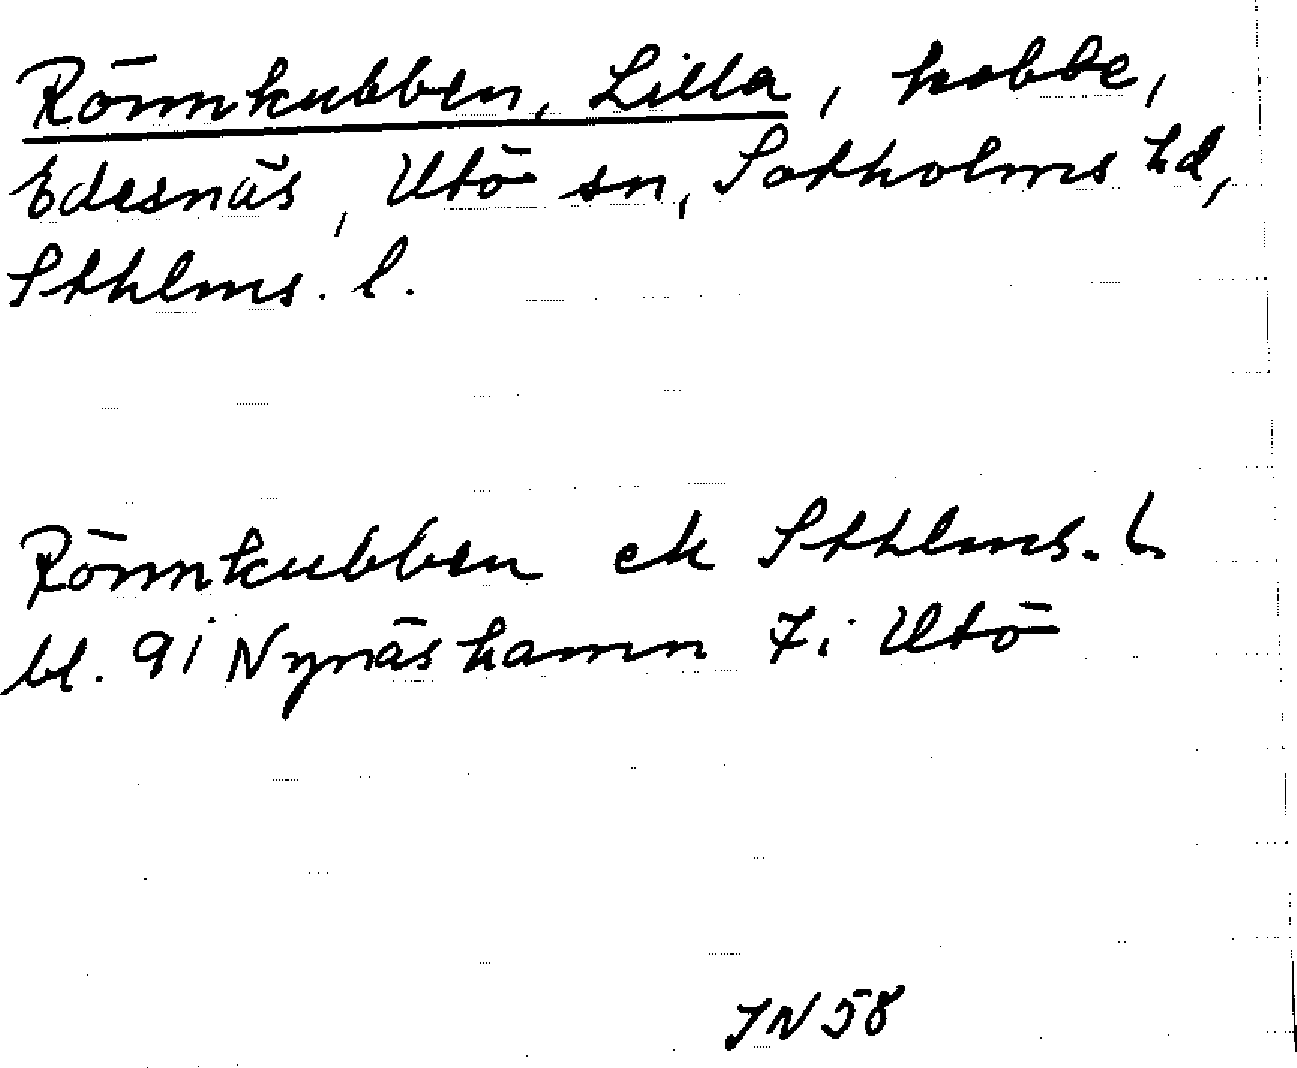 Rörnkubben, Lilla, kobbe,
Edesnäs, Utö sn, Sotholms hd,
Sthlms. l.
Rörnkubben ek Sthlms. l.
bl. 91 Nynäshamn 7i Utö
IN 58